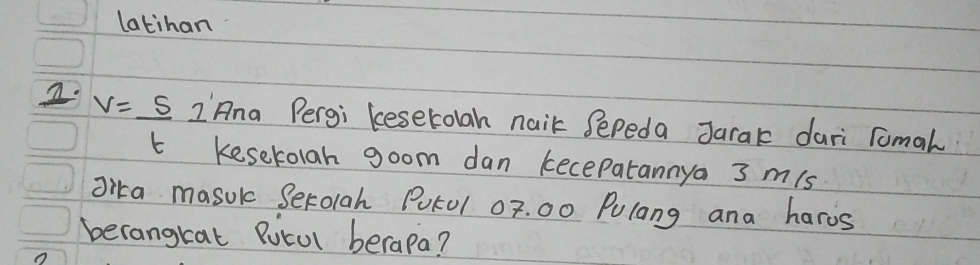 latihan
1. V= S 1 Ana Pergi kesekolah naik Sepeda Jarak dari romah
t kesekolah 900m dan kecepatannya 3 m/s
Jika masuk Sekolah Pukul 07.00 Pulang ana harus
berangkat Pukul berapa?